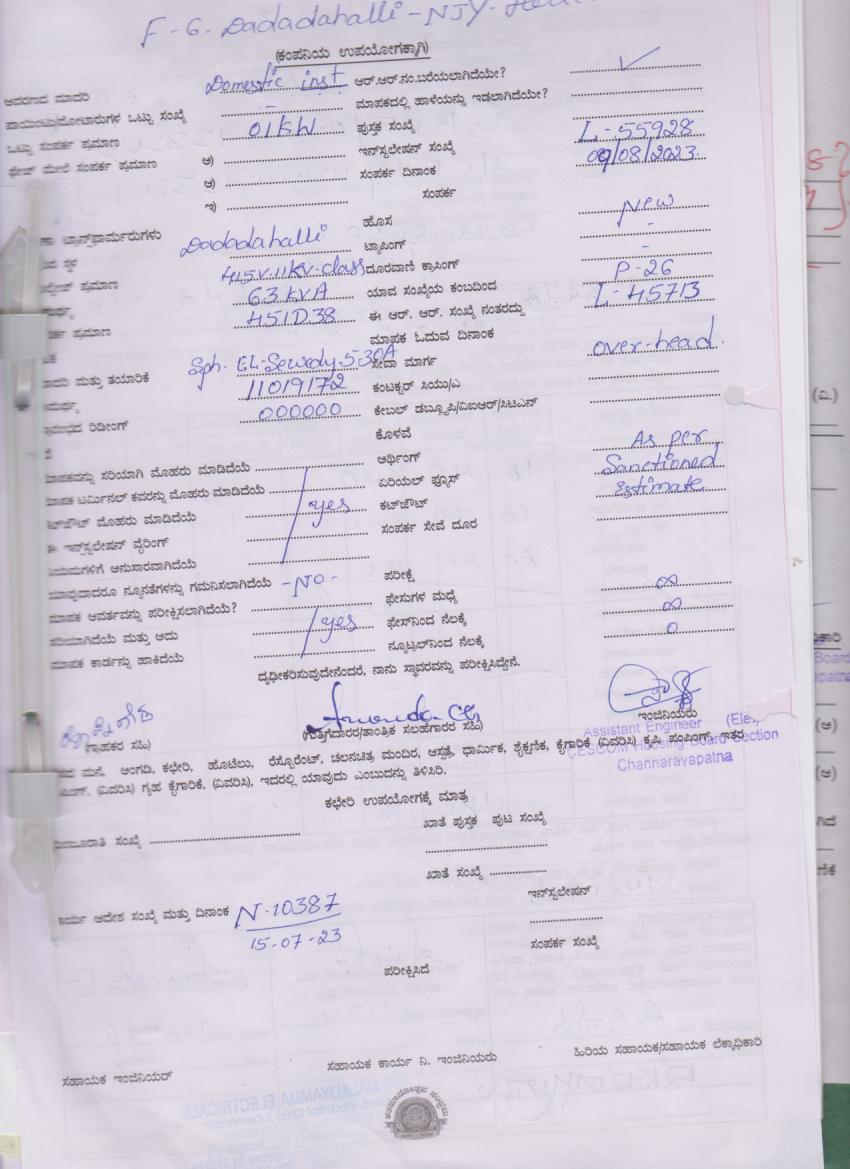 F-G. Dadadahalli - NJY-
(ಕಂಪನಿಯ ಉಪಯೋಗಕ್ಕಾಗಿ)
ಆವರಣದ ಮಾದರಿ Domestic inst ಆರ್.ಆರ್.ನಂ.ಬರೆಯಲಾಗಿದೆಯೇ? ✓
ಪಾಯಿಂಟು/ಮೋಟಾರುಗಳ ಒಟ್ಟು ಸಂಖ್ಯೆ - ಮಾಪಕದಲ್ಲಿ ಹಾಳೆಯನ್ನು ಇಡಲಾಗಿದೆಯೇ?
ಒಟ್ಟು ಸಂಪರ್ಕ ಪ್ರಮಾಣ 01KW ಪುಸ್ತಕ ಸಂಖ್ಯೆ
ಫೇಸ್ ಮೇಲೆ ಸಂಪರ್ಕ ಪ್ರಮಾಣ ಅ) ಇನ್‌ಸ್ಟಲೇಷನ್ ಸಂಖ್ಯೆ L-55928
ಆ) ಸಂಪರ್ಕ ದಿನಾಂಕ 09/08/2023
ಇ) ಸಂಪರ್ಕ
ಟ್ರಾನ್ಸ್‌ಫಾರ್ಮರುಗಳು ಹೊಸ New
ಸ್ಥಳ Dadadahalli ಟ್ಯಾಪಿಂಗ್ -
ಪ್ರಮಾಣ 415V.11KV-class ದೂರವಾಣಿ ಕ್ರಾಸಿಂಗ್ -
63 KVA ಯಾವ ಸಂಖ್ಯೆಯ ಕಂಬದಿಂದ P-26
ಪ್ರಮಾಣ 451D38 ಈ ಆರ್. ಆರ್. ಸಂಖ್ಯೆ ನಂತರದ್ದು L-45713
ಮಾಪಕ ಓದುವ ದಿನಾಂಕ
ಮತ್ತು ತಯಾರಿಕೆ Sph. EL-Sewedy 5-30A ಸೇವಾ ಮಾರ್ಗ over-head.
11019172 ಕಂಟಕ್ಟರ್ ಸಿಯು/ಎ
ರಿಡೀಂಗ್ 000000 ಕೇಬಲ್ ಡಬ್ಲ್ಯೂಪಿ/ವಿಐಆರ್/ಸಿಟಿಎಸ್
ಕೊಳವೆ
ಮಾಪಕವನ್ನು ಸರಿಯಾಗಿ ಮೊಹರು ಮಾಡಿದೆಯೆ ಅರ್ಥಿಂಗ್ As per
ಮಾಪಕ ಟರ್ಮಿನಲ್ ಕವರನ್ನು ಮೊಹರು ಮಾಡಿದೆಯೆ ಏರಿಯಲ್ ಫ್ಯೂಸ್ Sanctinned
ಕಟ್‌ಔಟ್ ಮೊಹರು ಮಾಡಿದೆಯೆ yes ಕಟ್‌ಔಟ್ Estimate
ಈ ಇನ್‌ಸ್ಟಲೇಷನ್ ವೈರಿಂಗ್ ಸಂಪರ್ಕ ಸೇವೆ ದೂರ
ನಿಯಮಗಳಿಗೆ ಅನುಸಾರವಾಗಿದೆಯೆ
ಯಾವುದಾದರೂ ನ್ಯೂನತೆಗಳನ್ನು ಗಮನಿಸಲಾಗಿದೆಯೆ -NO- ಪರೀಕ್ಷೆ
ಮಾಪಕ ಆವರ್ತವನ್ನು ಪರೀಕ್ಷಿಸಲಾಗಿದೆಯೆ? ಫೇಸುಗಳ ಮಧ್ಯೆ ∞
ಸರಿಯಾಗಿದೆಯೆ ಮತ್ತು ಅದು yes ಫೇಸ್‌ನಿಂದ ನೆಲಕ್ಕೆ ∞
ಮಾಪಕ ಕಾರ್ಡನ್ನು ಹಾಕಿದೆಯೆ ನ್ಯೂಟ್ರಲ್‌ನಿಂದ ನೆಲಕ್ಕೆ 0
ದೃಢೀಕರಿಸುವುದೇನೆಂದರೆ, ನಾನು ಸ್ಥಾವರವನ್ನು ಪರೀಕ್ಷಿಸಿದ್ದೇನೆ.
(ಗ್ರಾಹಕರ ಸಹಿ) (ಗುತ್ತಿಗೆದಾರರ/ತಾಂತ್ರಿಕ ಸಲಹೆಗಾರರ ಸಹಿ) ಇಂಜಿನಿಯರು
Assistant Engineer (Ele)
CESCOM Housing Board Section
Channarayapatna
ಮನೆ, ಅಂಗಡಿ, ಕಛೇರಿ, ಹೊಟೇಲು, ರೆಸ್ಟೊರೆಂಟ್, ಚಲನಚಿತ್ರ ಮಂದಿರ, ಆಸ್ಪತ್ರೆ, ಧಾರ್ಮಿಕ, ಶೈಕ್ಷಣಿಕ, ಕೈಗಾರಿಕೆ (ವಿವರಿಸಿ) ಕೃಷಿ ಪಂಪಿಂಗ್, ಇತ್ತರ
ಪಿಂಗ್. (ವಿವರಿಸಿ) ಗೃಹ ಕೈಗಾರಿಕೆ, (ವಿವರಿಸಿ), ಇದರಲ್ಲಿ ಯಾವುದು ಎಂಬುದನ್ನು ತಿಳಿಸಿರಿ.
ಕಛೇರಿ ಉಪಯೋಗಕ್ಕೆ ಮಾತ್ರ
ಸಂಖ್ಯೆ ಖಾತೆ ಪುಸ್ತಕ ಪುಟ ಸಂಖ್ಯೆ
ಖಾತೆ ಸಂಖ್ಯೆ
ಕಾರ್ಯ ಆದೇಶ ಸಂಖ್ಯೆ ಮತ್ತು ದಿನಾಂಕ N-10387 ಇನ್‌ಸ್ಟಲೇಷನ್
15-07-23 ಸಂಪರ್ಕ ಸಂಖ್ಯೆ
ಪರೀಕ್ಷಿಸಿದೆ
ಸಹಾಯಕ ಇಂಜಿನಿಯರ್ ಸಹಾಯಕ ಕಾರ್ಯ ನಿ. ಇಂಜಿನಿಯರು ಹಿರಿಯ ಸಹಾಯಕ/ಸಹಾಯಕ ಲೆಕ್ಕಾಧಿಕಾರಿ